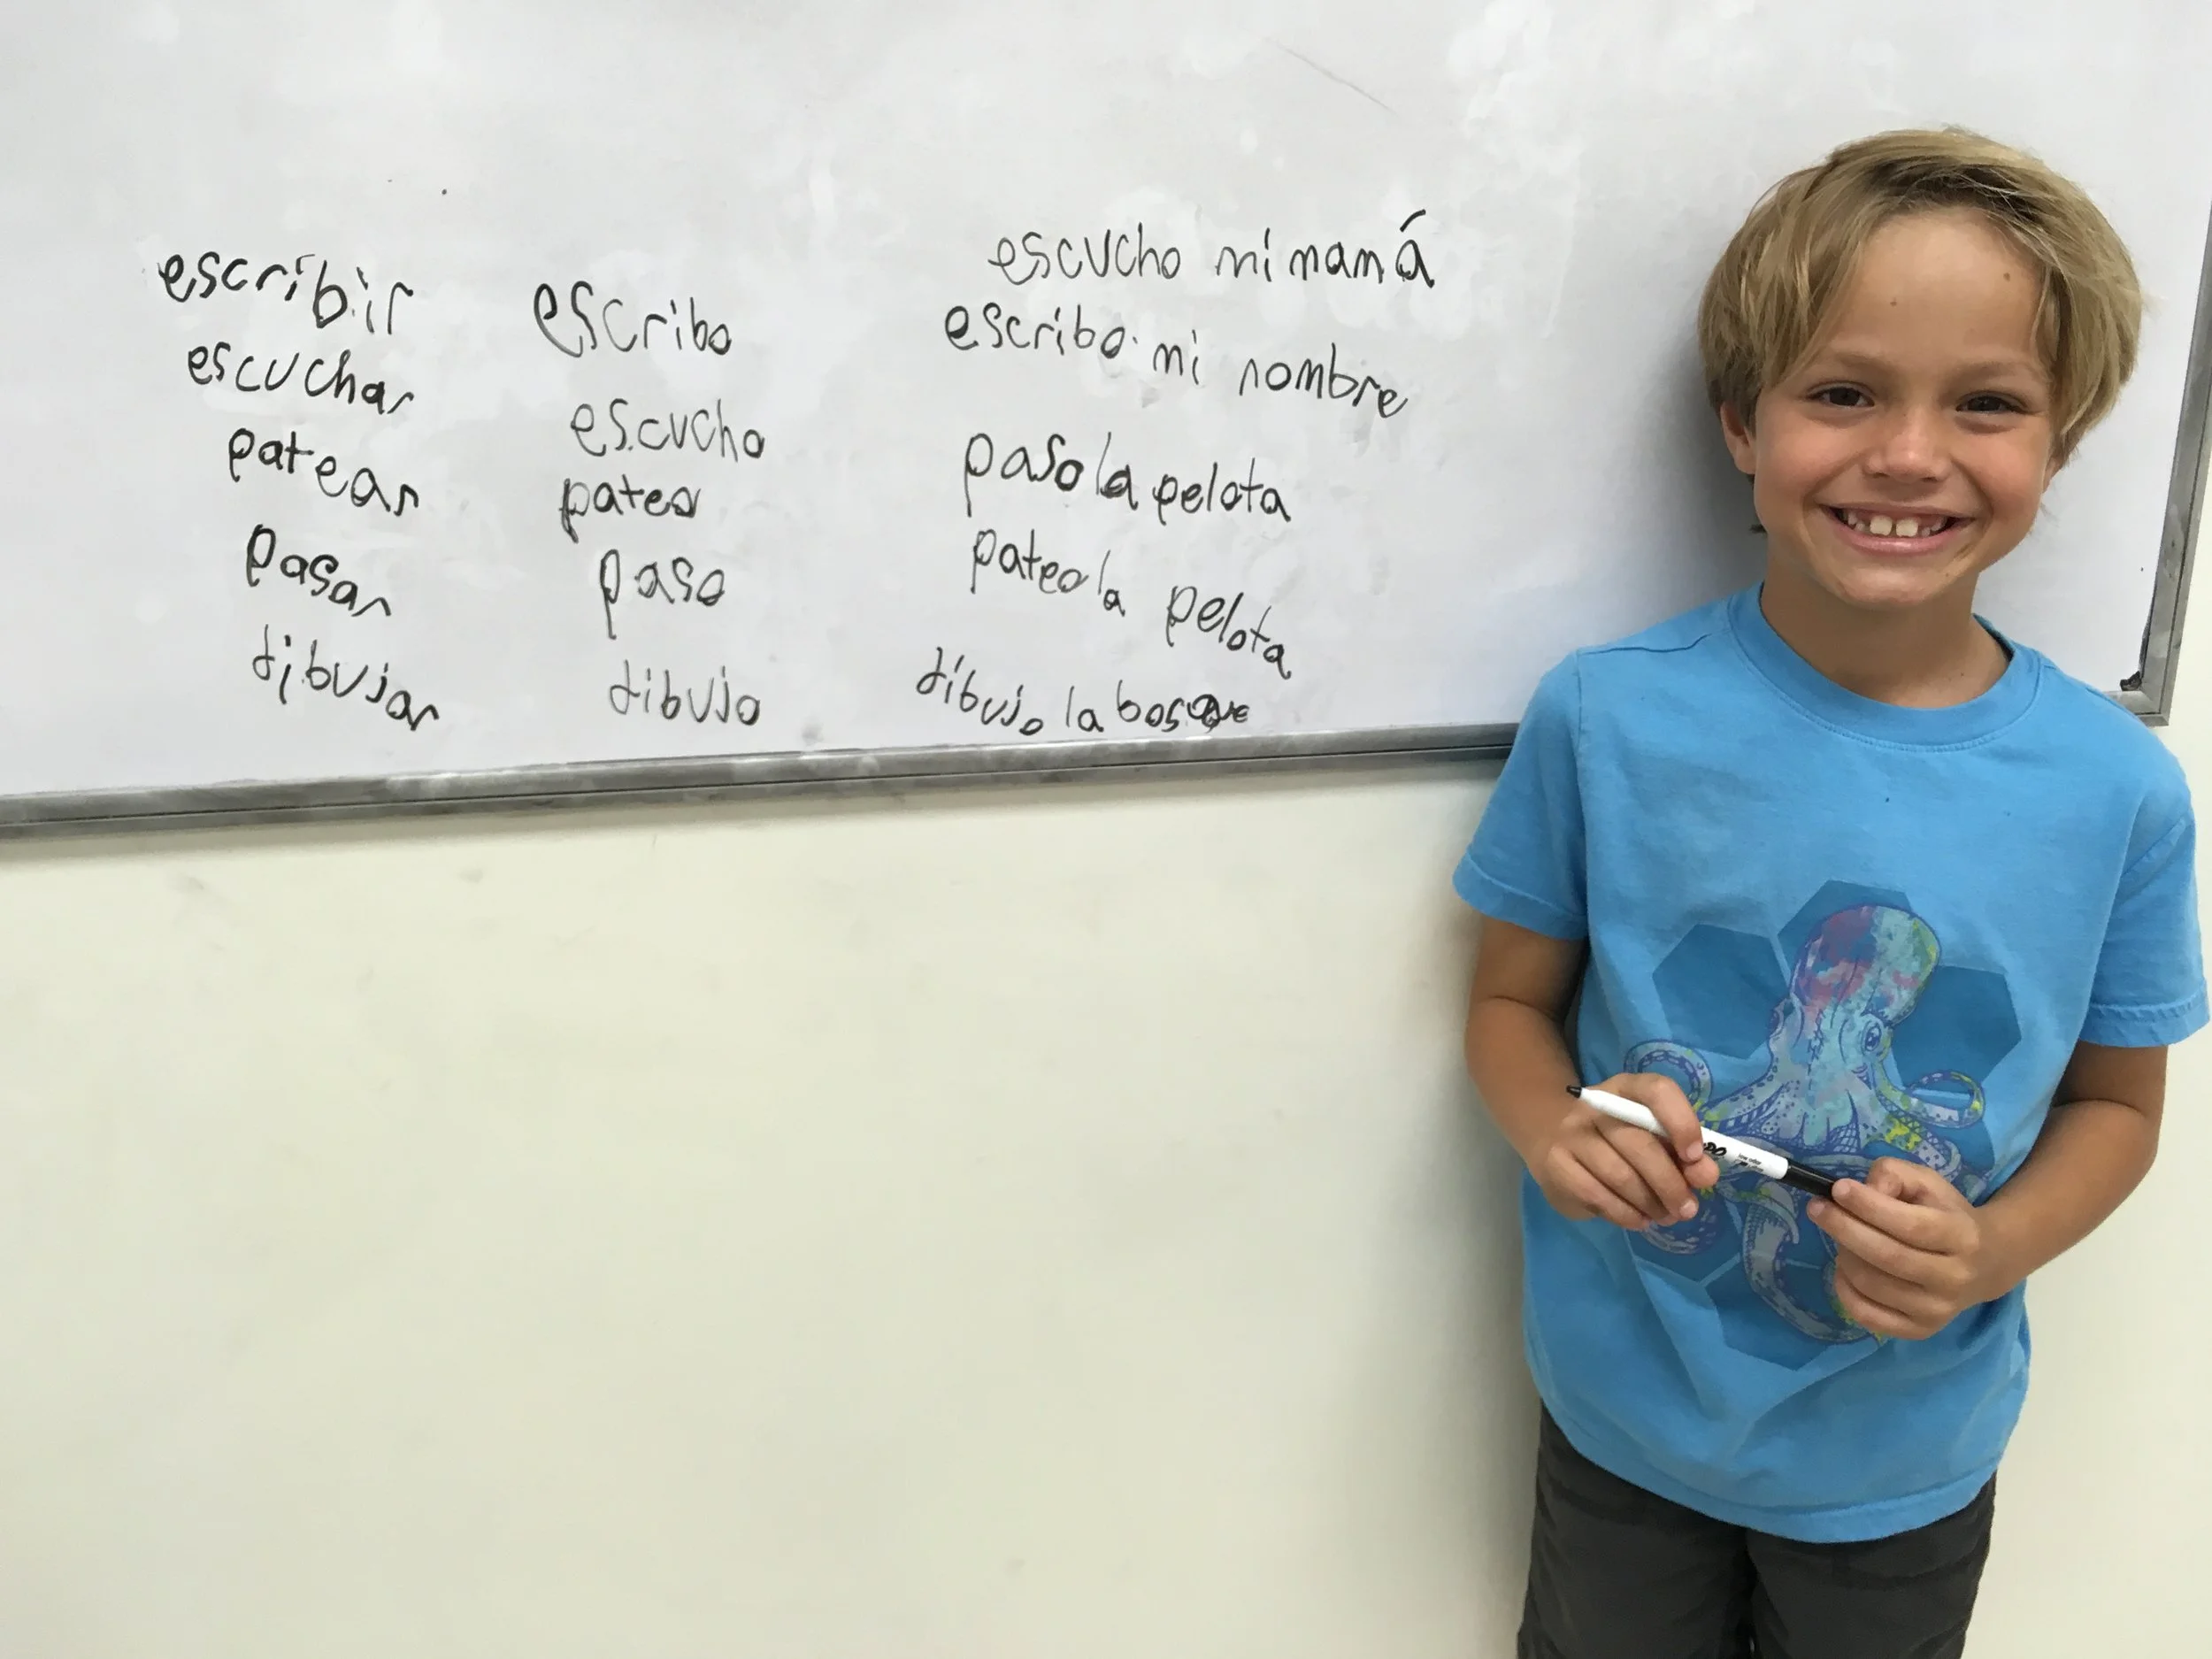 escribir
escuchar
patear
pasar
dibujar
escribo
escucho
pateo
paso
dibujo
escucho mi mamá
escribo mi nombre
paso la pelota
pateo la pelota
dibujo la bosque